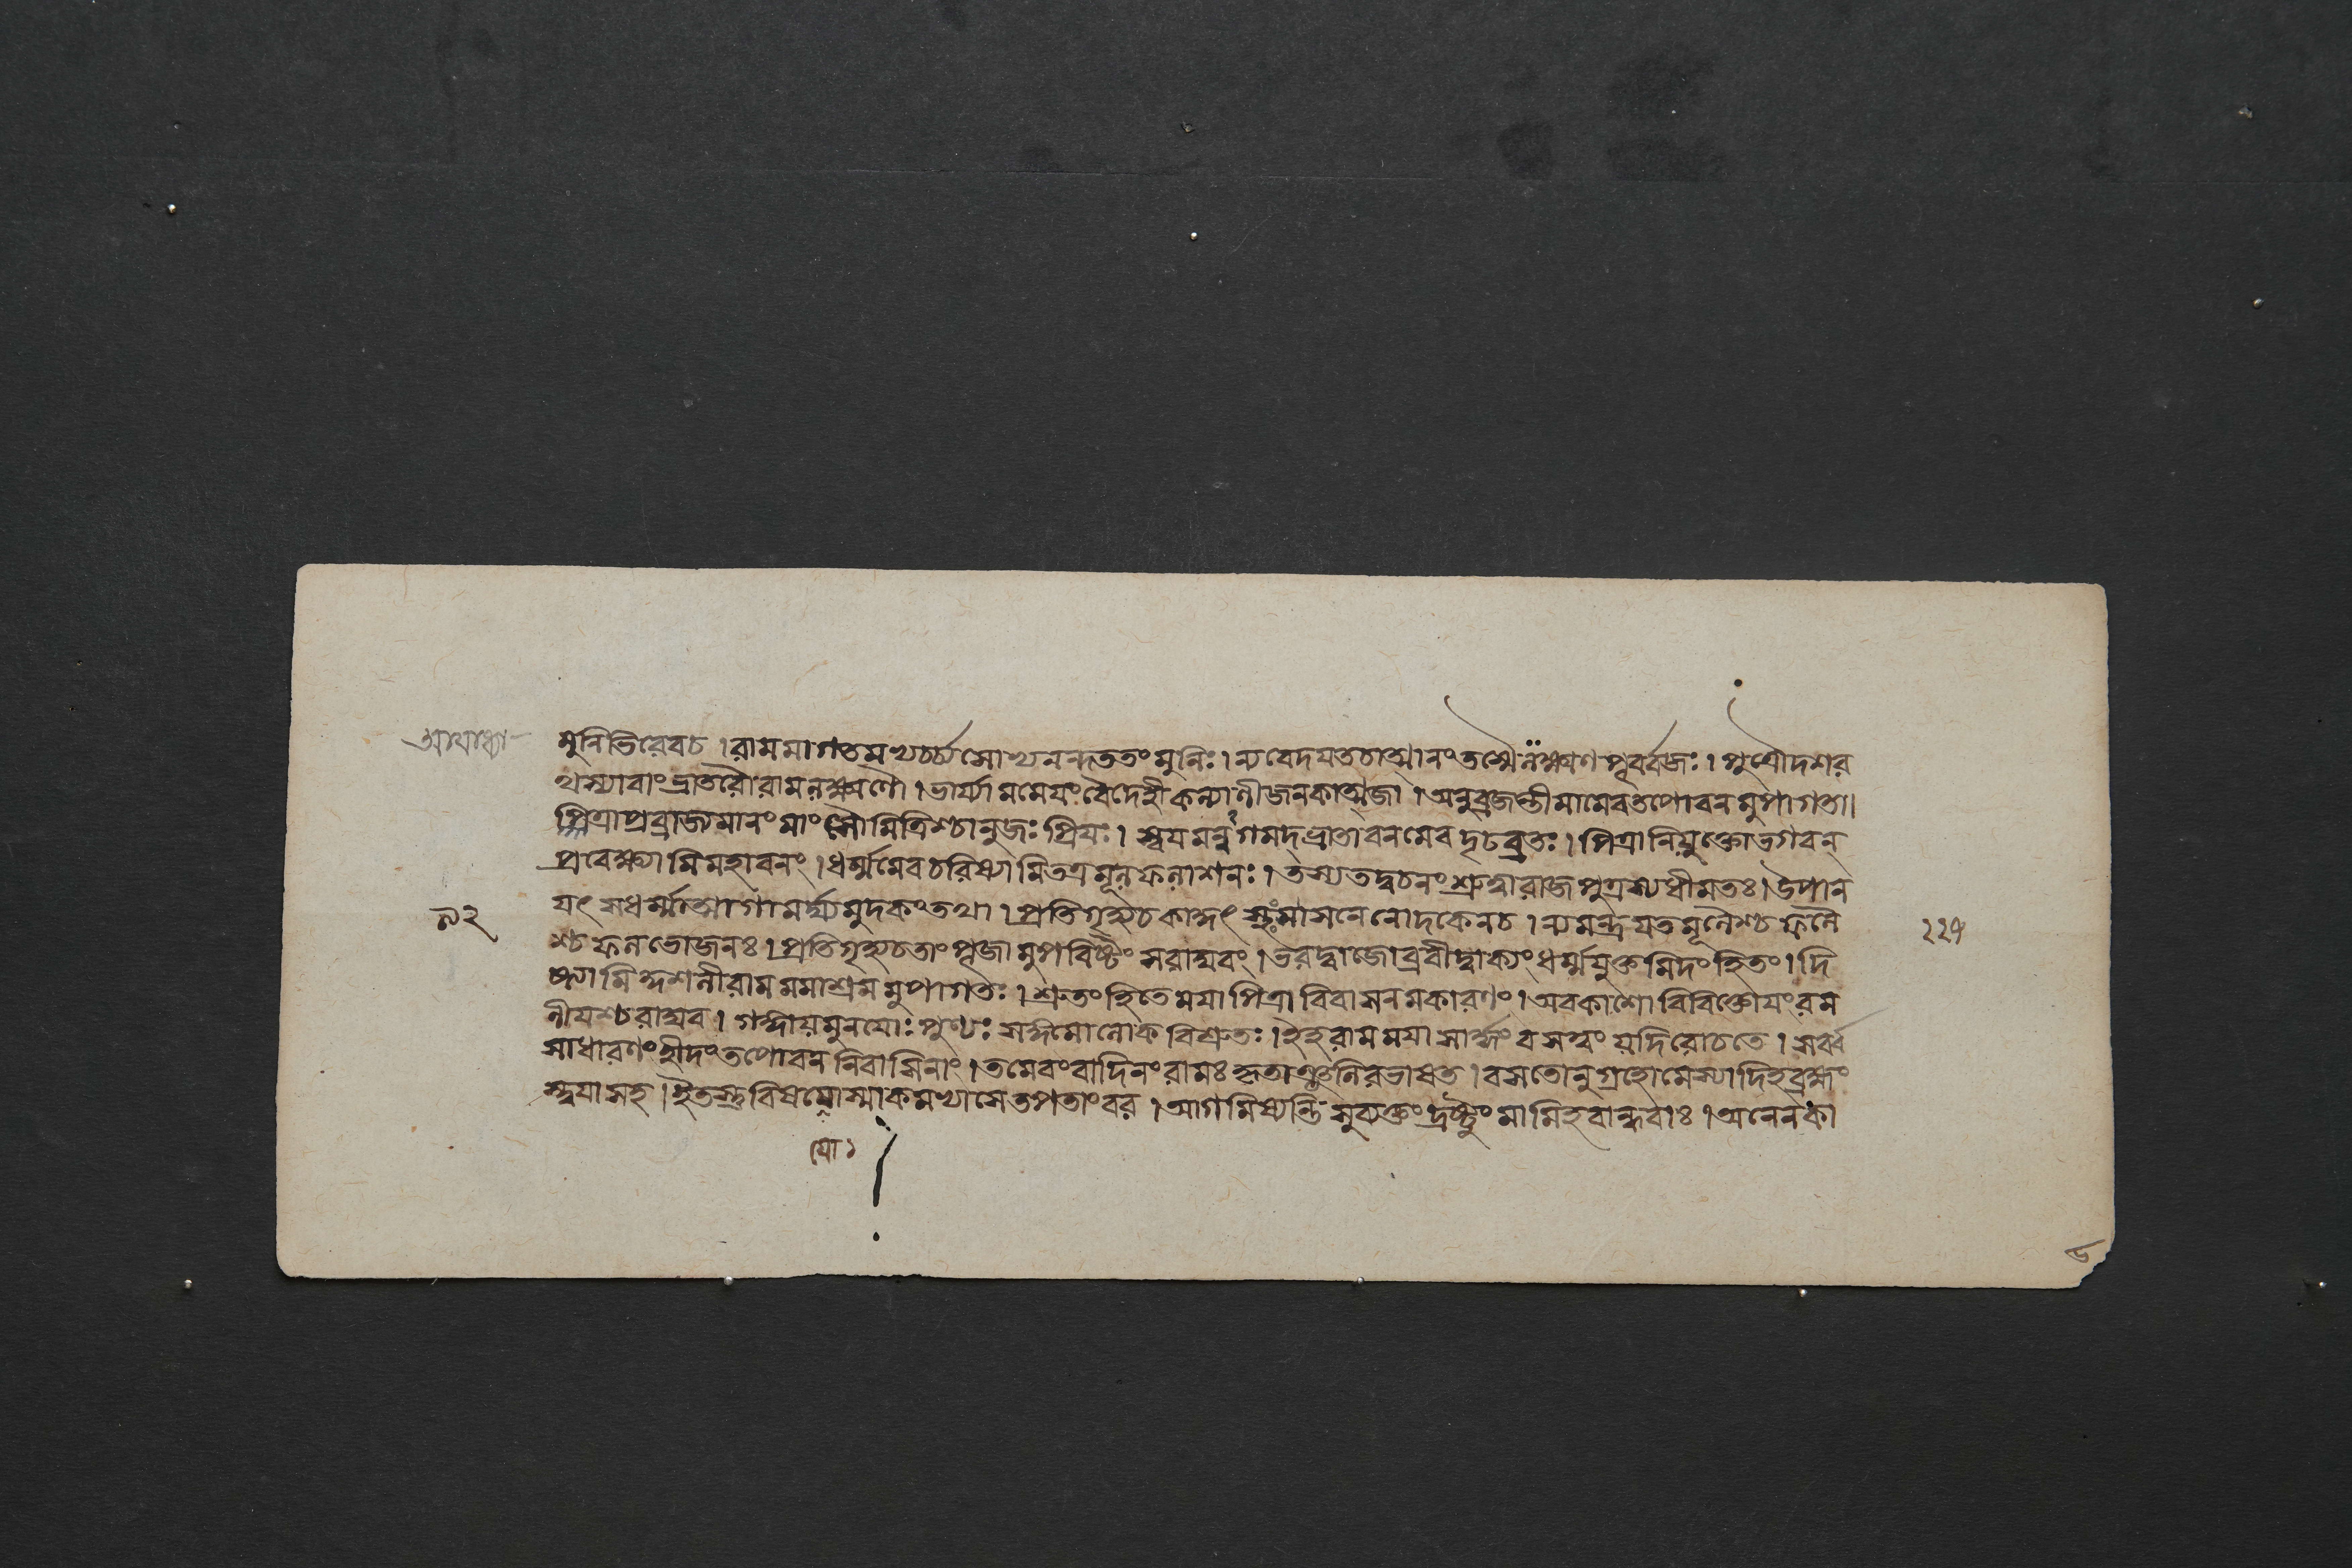 অযোধ্যা
মুনিভিরেবচ । রামমাগতম
ভ্যর্চ্চ্যসোভ্যনন্দত্ততংমুনিঃ । ন্যবেদয়তচাত্মানংতস্মৈলক্ষ্মণপূর্ব্বজঃ । পুত্রৌদশর
থস্যাবাংভ্রাতরৌরামলক্ষ্মণৌ । ভার্য্যামমেয়ংবৈদেহীকল্যাণীজনকাত্মজা । অনুব্রজন্তীমামেবতপোবনমুপাগতা।
পিত্রাপ্রব্রাজ্যমানংমাংসৌমিত্রিশ্চানুজঃপ্রিয়ঃ । স্বয়মন্বগমদ্ভ্রাতাবনমেবদৃঢব্রতঃ । পিত্রানিযুক্তোভগবন্
প্রবেক্ষ্যামিমহাবনং । ধর্ম্মমেবচরিষ্যামিতত্রমূলফলাশনঃ । তস্যতদ্বচনংশ্রুত্বারাজপুত্রস্যধীমতঃ । উপান
৯২
যৎসধর্ম্মাত্মাগামর্ঘ্যমুদকংতথা । প্রতিগৃহ্যচকাকুৎস্থমাসনেনোদকেনচ । ন্যমন্ত্রয়তমূলৈশ্চফলৈ
২২৭
শ্চফলভোজনঃ । প্রতিগৃহ্যচতাংপূজামুপবিষ্টংসরাঘবং । ভরদ্বাজোব্রবীদ্বাক্যংধর্ম্মযুক্তমিদংহিতং । দি
রামমমাশ্রমমুপাগতঃ । শ্রুতংহিতেময়াপিত্রাবিবাসনমকারণং । অবকাশোবিবিক্তোয়ংরম
ণীয়শ্চরাঘব । গঙ্গায়মুনয়োঃপুণ্যঃসঙ্গমোলোকবিশ্রুতঃ । ইহরামময়াসার্দ্ধংবসত্বংযদিরোচতে । সর্ব্ব
সাধারণংহীদংতপোবননিবাসিনাং । তমেবংবাদিনংরামঃকৃতাঞ্জলিরভাষত । বসতোনুগ্রহোমেস্যাদিহব্রহ্মং
স্ত্বয়াসহ । ইতস্তুবিষয়োস্মাকমভ্যাসেতপতাংবর । আগমিষ্যন্তিসুব্যক্তংদ্রষ্টুংমামিহবান্ধবাঃ । অনেনকা
যো১